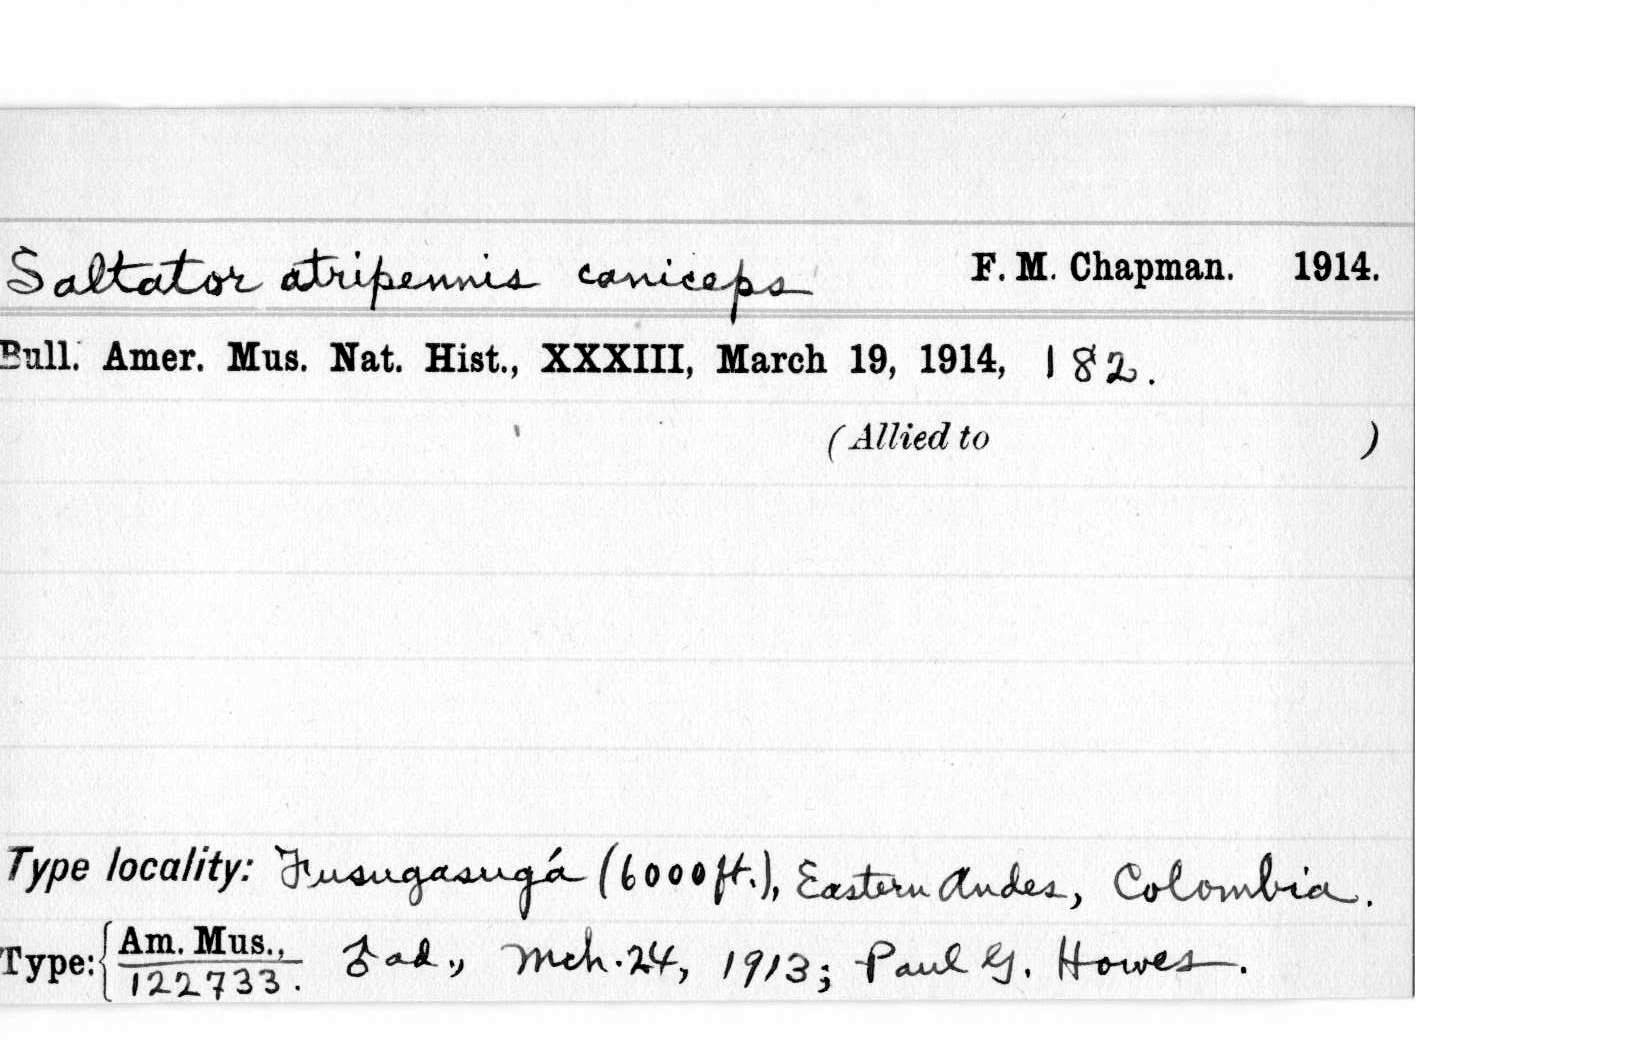 Saltator atripennis caniceps F. M. Chapman. 1914.
Bull. Amer. Mus. Nat. Hist., XXXIII, March 19, 1914, 182.
(Allied to )
Type locality: Fusugasugá (6000 ft.), Eastern Andes, Colombia.
Type: Am. Mus., 122733. ♂ ad., Mch. 24, 1913; Paul G. Howes.